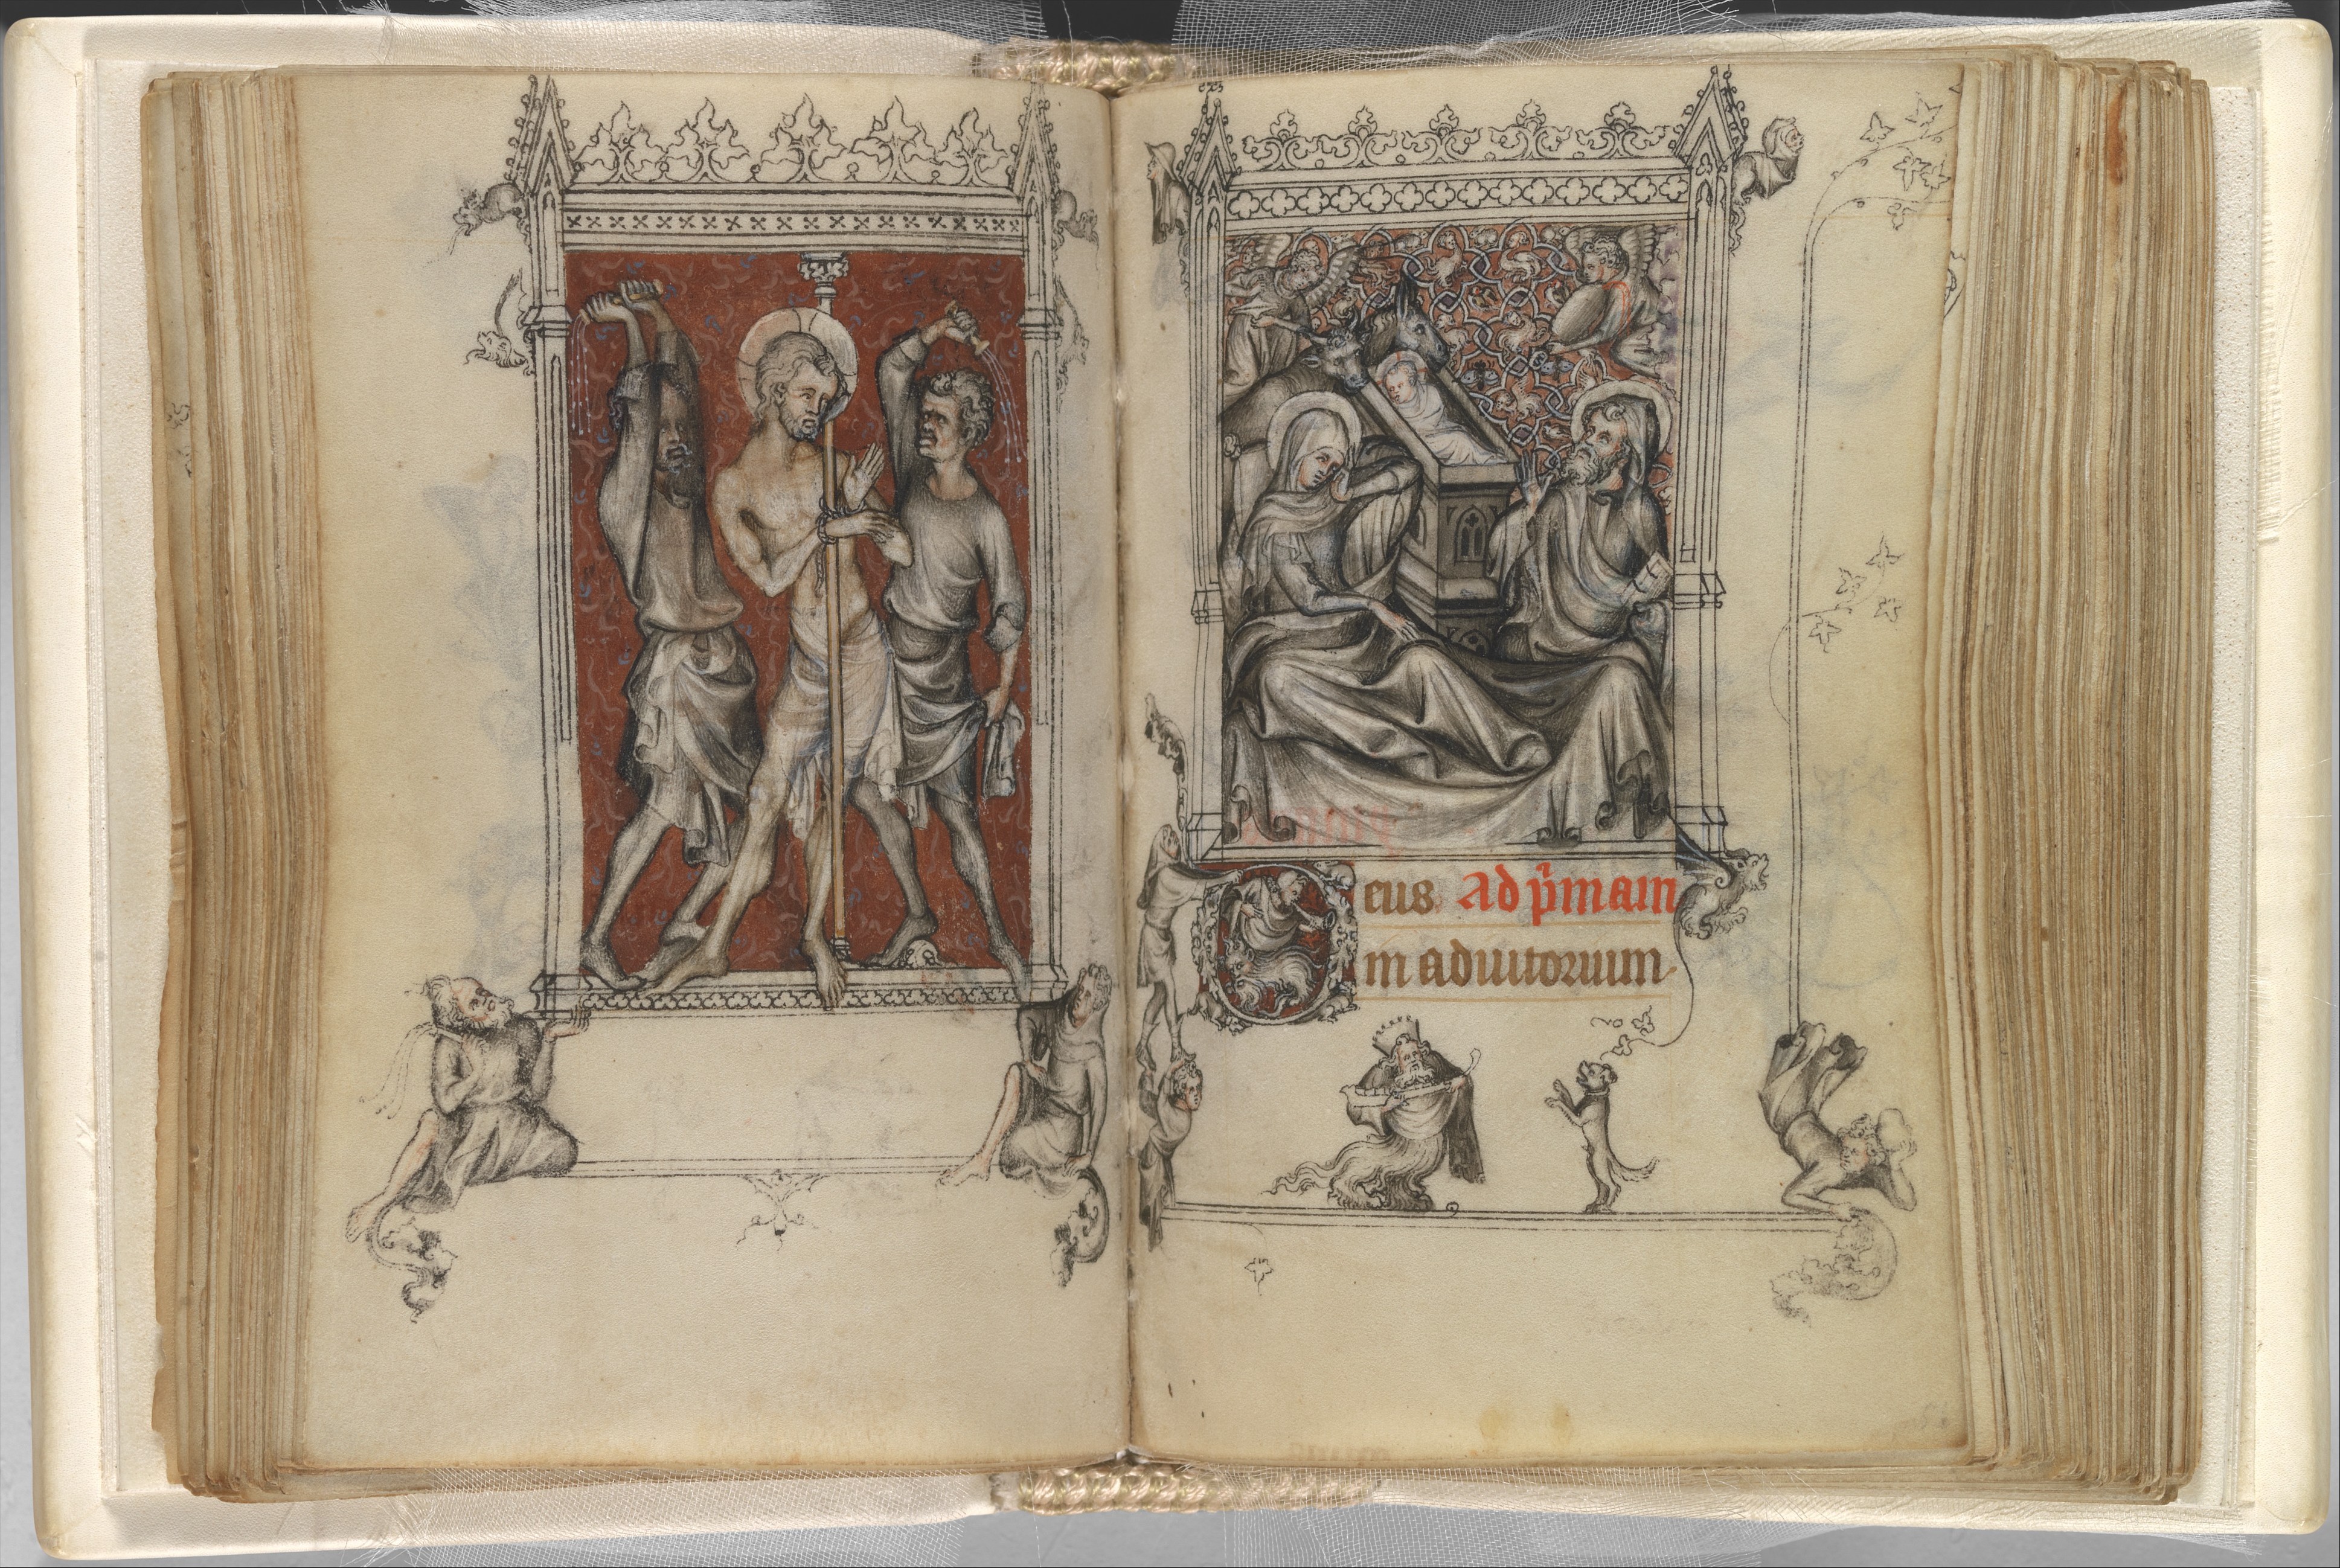 Deus. Ad p̄mam
in adiutorium